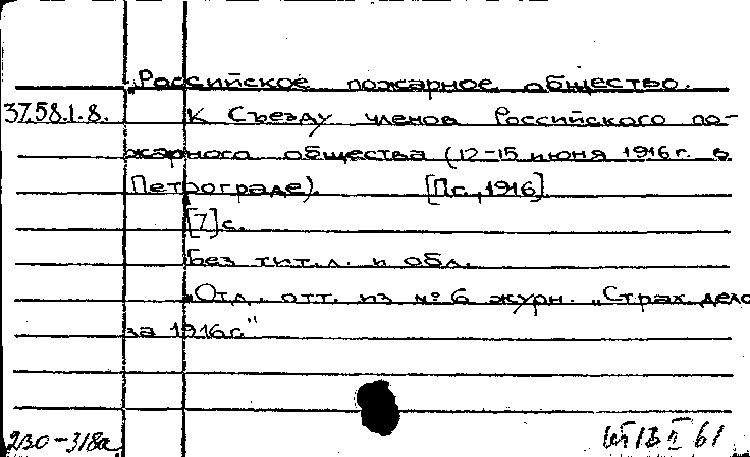 „Российское пожарное общество.
37.58.1.8. К Съезду членов Российского по-
жарного общества (12-15 июня 1916 г. в
Петрограде). [Пг., 1916]
[7] с.
Без тит. л. и обл.
„Отд. отт. из № 6 журн. „Страх. дело
за 1916 г."
230-318а 61